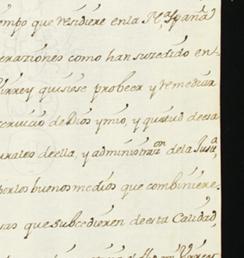 empo que residiere en la Nª españa
eraziones como han suzedido en
Virrey quisiese probeer y remediar
servicio de Dios y mio, y quietud de esa
urales de ella, y administrazon de la Justª
por los buenos medios que combiniere
as que subcedieren de esta Calidad
Virrey